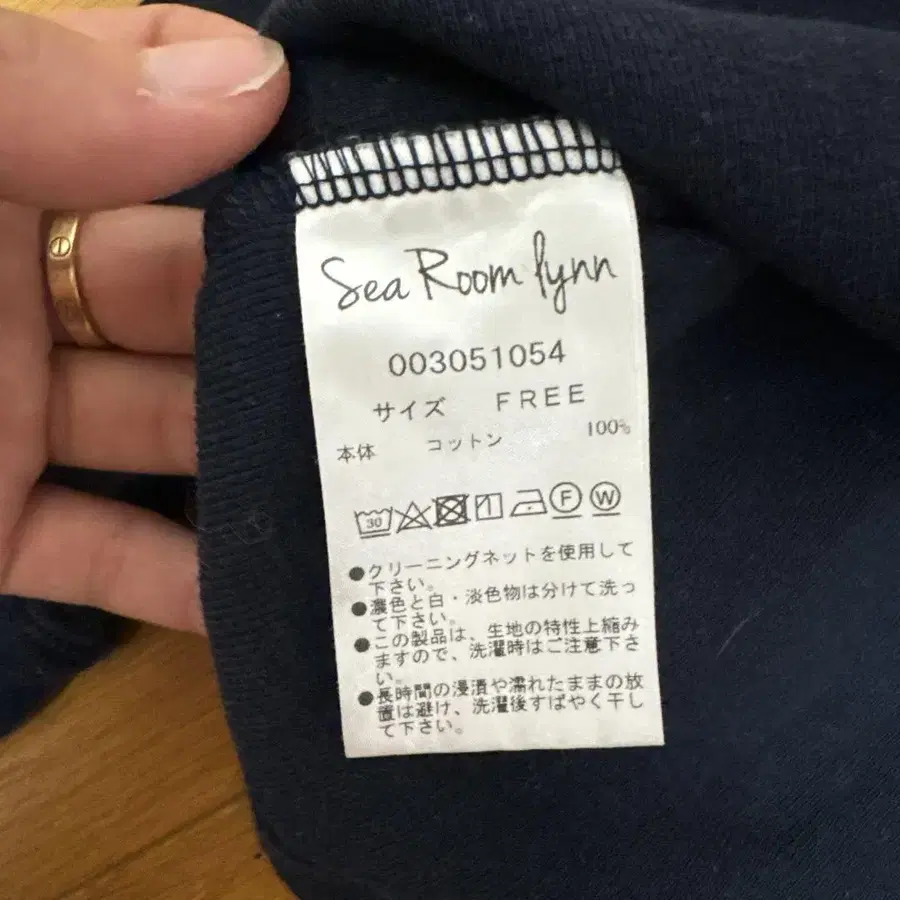 Sea Room lynn
003051054
サイズ FREE
本体 コットン 100%
30 F W
●クリーニングネットを使用して
下さい。
●濃色と白・淡色物は分けて洗っ
て下さい。
●この製品は、生地の特性上縮み
ますので、洗濯時はご注意下さ
い。
●長時間の浸漬や濡れたままの放
置は避け、洗濯後すばやく干し
て下さい。